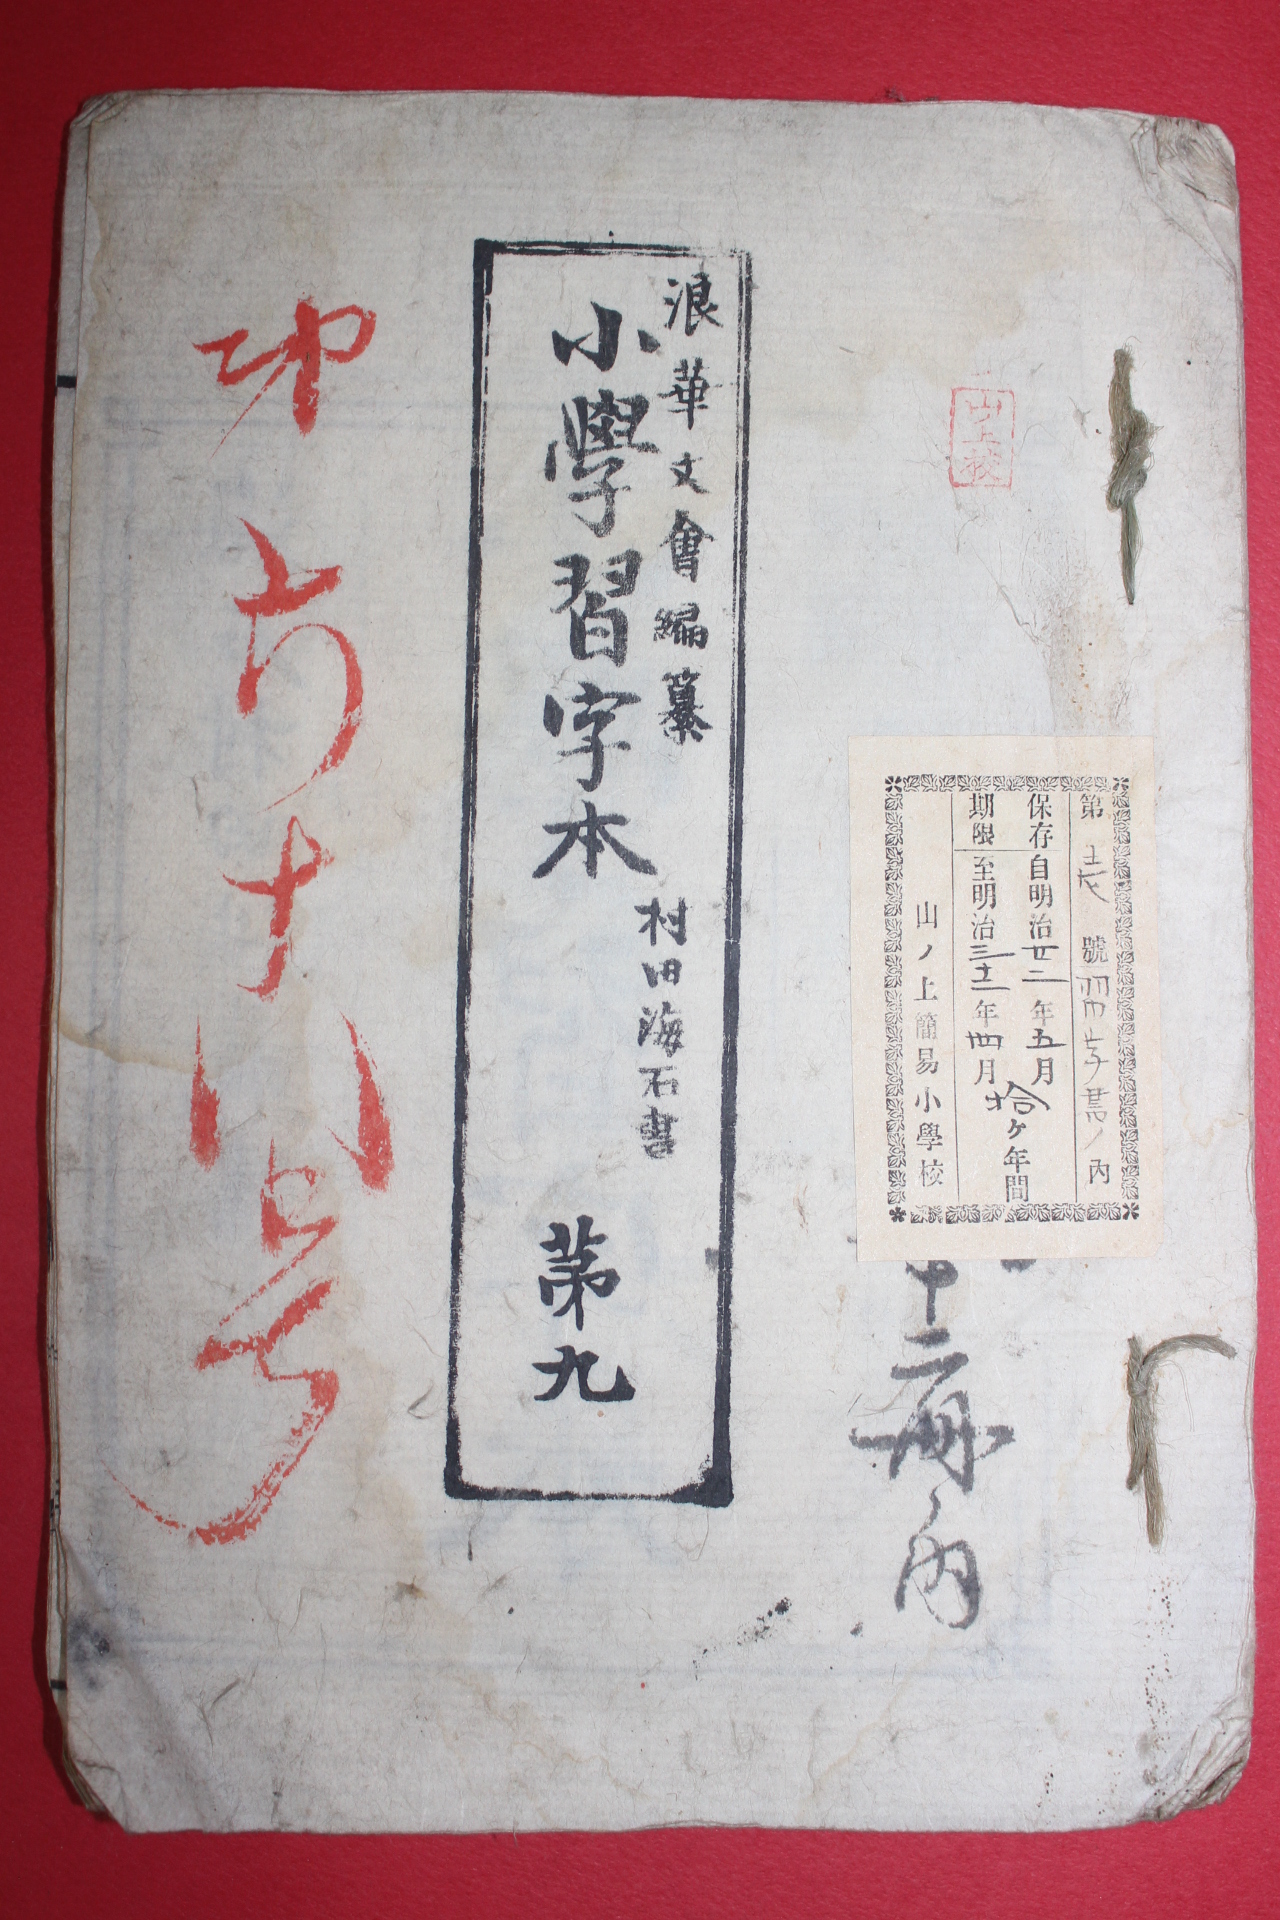 山上校
第 壱 號 習字書ノ内
保存 自明治廿二年五月
期限 至明治三十二年四月
拾ヶ年間
山ノ上簡易小學校
十二冊ノ内
浪華文會編纂
小學習字本 第九
村田海石書
第六十八号